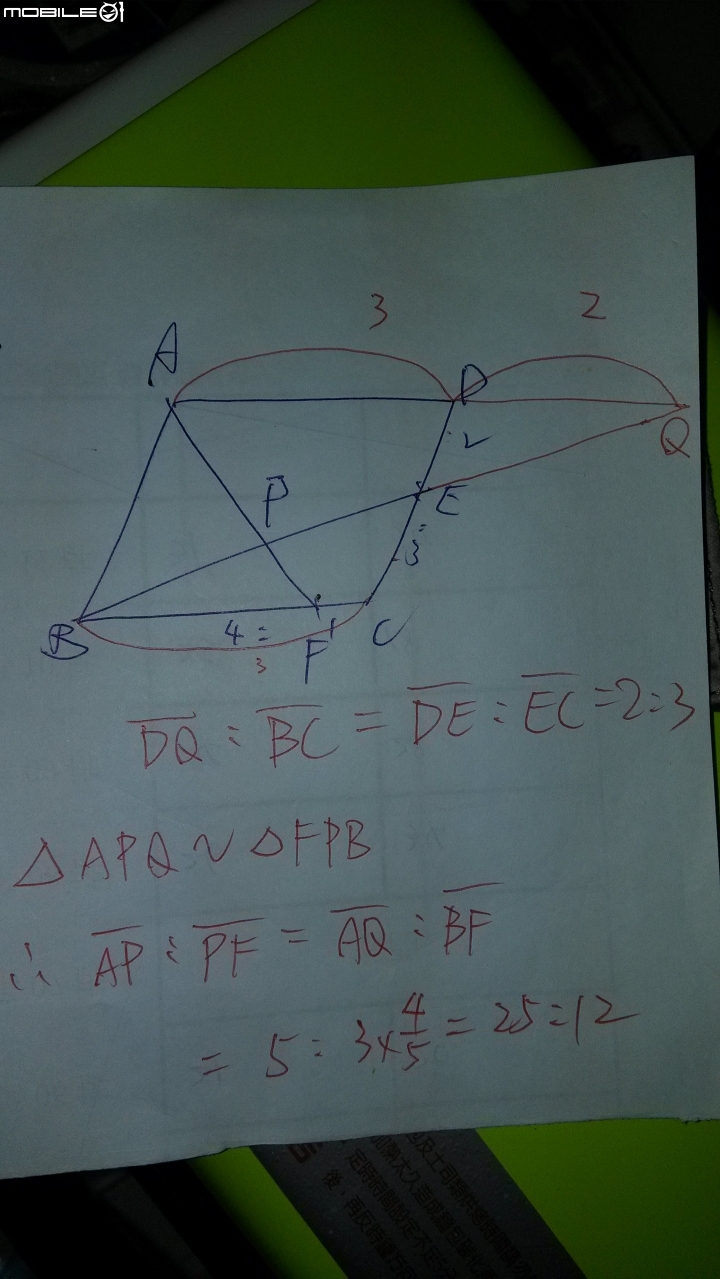 MOBILE01
3 2
A D Q
2
P E
:
3
B 4 : F 1 C
3
DQ : BC = DE : EC = 2 : 3
△APQ ~ △FPB
∴ AP : PF = AQ : BF
= 5 : 3 × 4/5 = 25 : 12